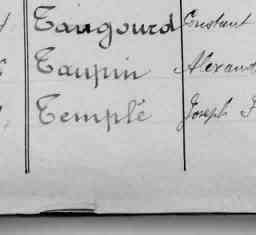 Taugourd Constant
Taupin Alexand
Templé Joseph F